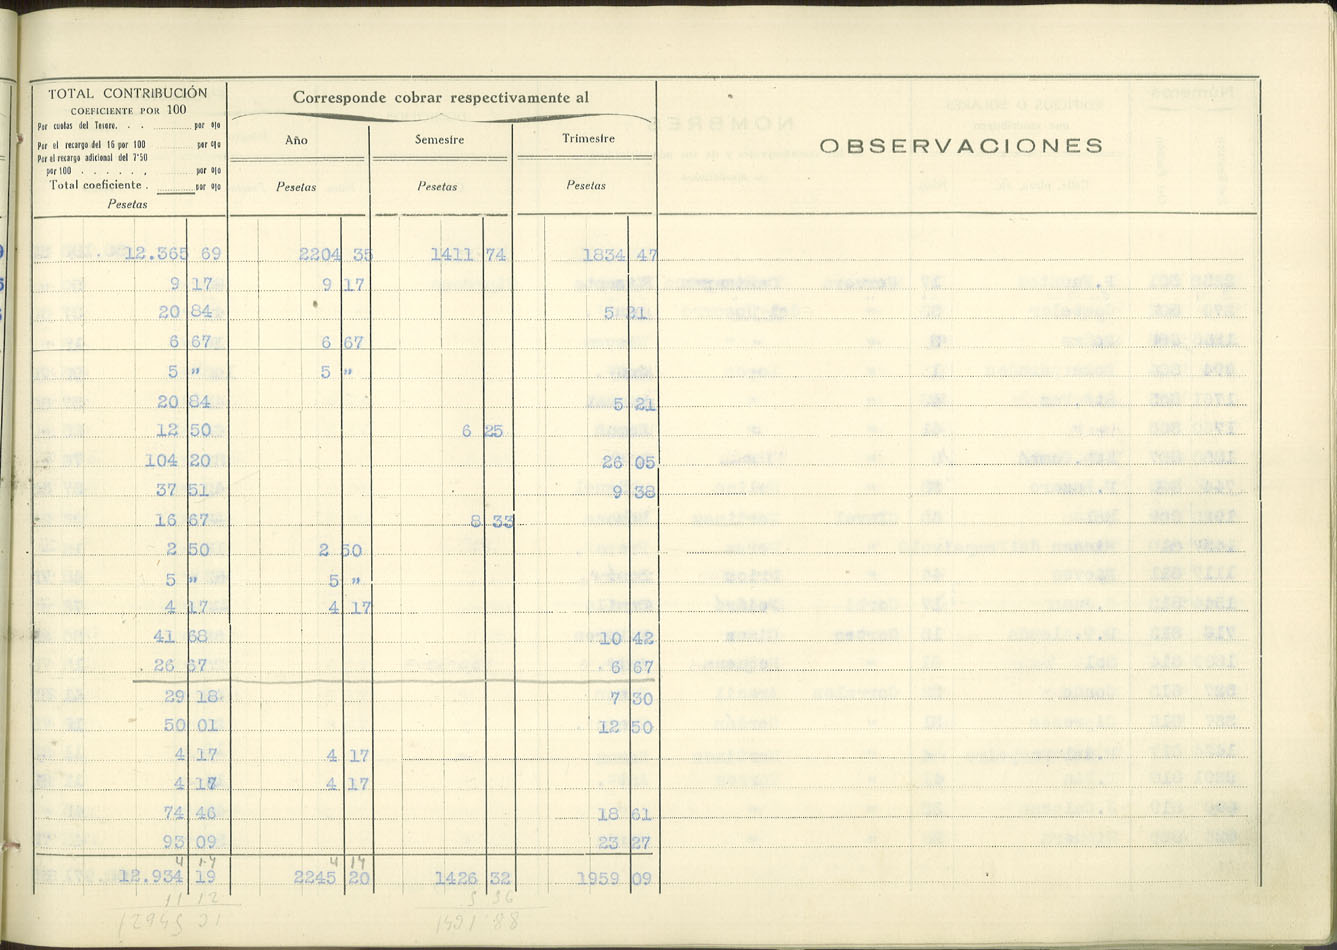 TOTAL CONTRIBUCIÓN
COEFICIENTE POR 100
Por cuotas del Tesoro. . . por 0|0
Por el recargo del 16 por 100 por 0|0
Por el recargo adicional del 7'50
por 100 . . . . . . , por 0|0
Total coeficiente . por 0|0
Pesetas
Corresponde cobrar respectivamente al
Año Semestre Trimestre
Pesetas Pesetas Pesetas
OBSERVACIONES
12.365 69 2204 35 1411 74 1834 47
9 17 9 17
20 84 5 21
6 67 6 67
5 " 5 "
20 84 5 21
12 50 6 25
104 20 26 05
37 51 9 38
16 67 8 33
2 50 2 50
5 " 5 "
4 17 4 17
41 68 10 42
26 67 6 67
29 18 7 30
50 01 12 50
4 17 4 17
4 17 4 17
74 46 18 61
93 09 23 27
4 17 4 17
12.934 19 2245 20 1426 32 1959 09
11 12 5 56